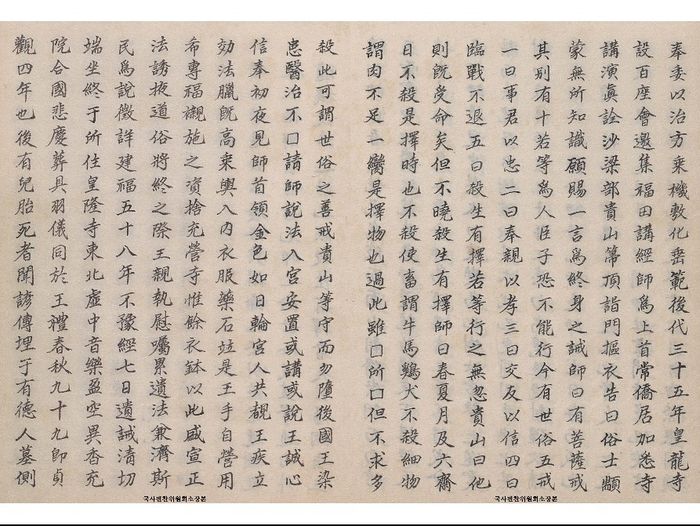 奉委以治方乘機敷化垂範後代三十五年皇龍寺
設百座會邀集福田講經師爲上首常僑居加悉寺
講演眞詮沙梁部貴山箒頂詣門摳衣告曰俗士顓
蒙無所知識願賜一言爲終身之誡師曰有菩薩戒
其別有十若等爲人臣子恐不能行今有世俗五戒
一曰事君以忠二曰奉親以孝三曰交友以信四曰
臨戰不退五曰殺生有擇若等行之無忽貴山曰他
則旣受命矣但不曉殺生有擇師曰春夏月及六齋
日不殺是擇時也不殺使畜謂牛馬鷄犬不殺細物
謂肉不足一臠是擇物也過此雖□所□但不求多
국사편찬위원회소장본
殺此可謂世俗之善戒貴山等守而勿墮後國王染
患醫治不□請師說法入宮安置或講或說王誠心
信奉初夜見師首領金色如日輪宮人共覩王疾立
効法臘旣高乘輿入内衣服藥石竝是王手自營用
希專福襯施之資捨充營寺惟餘衣鉢以此盛宣正
法誘掖道俗將終之際王親執慰囑累遺法兼濟斯
民爲說徵詳建福五十八年不豫經七日遺誡清切
端坐終于所住皇隆寺東北虛中音樂盈空異香充
院合國悲慶葬具羽儀同於王禮春秋九十九師貞
觀四年也後有兒胎死者聞諺傳埋于有德人墓側
국사편찬위원회소장본